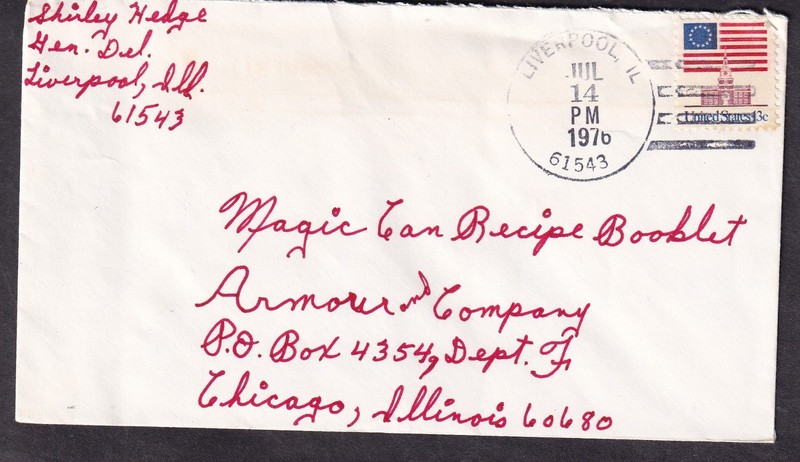 Shirley Hedge
Gen. Del.
Liverpool, Ill.
61543
LIVERPOOL, IL
JUL
14
PM
1976
61543
United States 13c
Magic Can Recipe Booklet
Armour and Company
P.O. Box 4354, Dept. F
Chicago, Illinois 60680